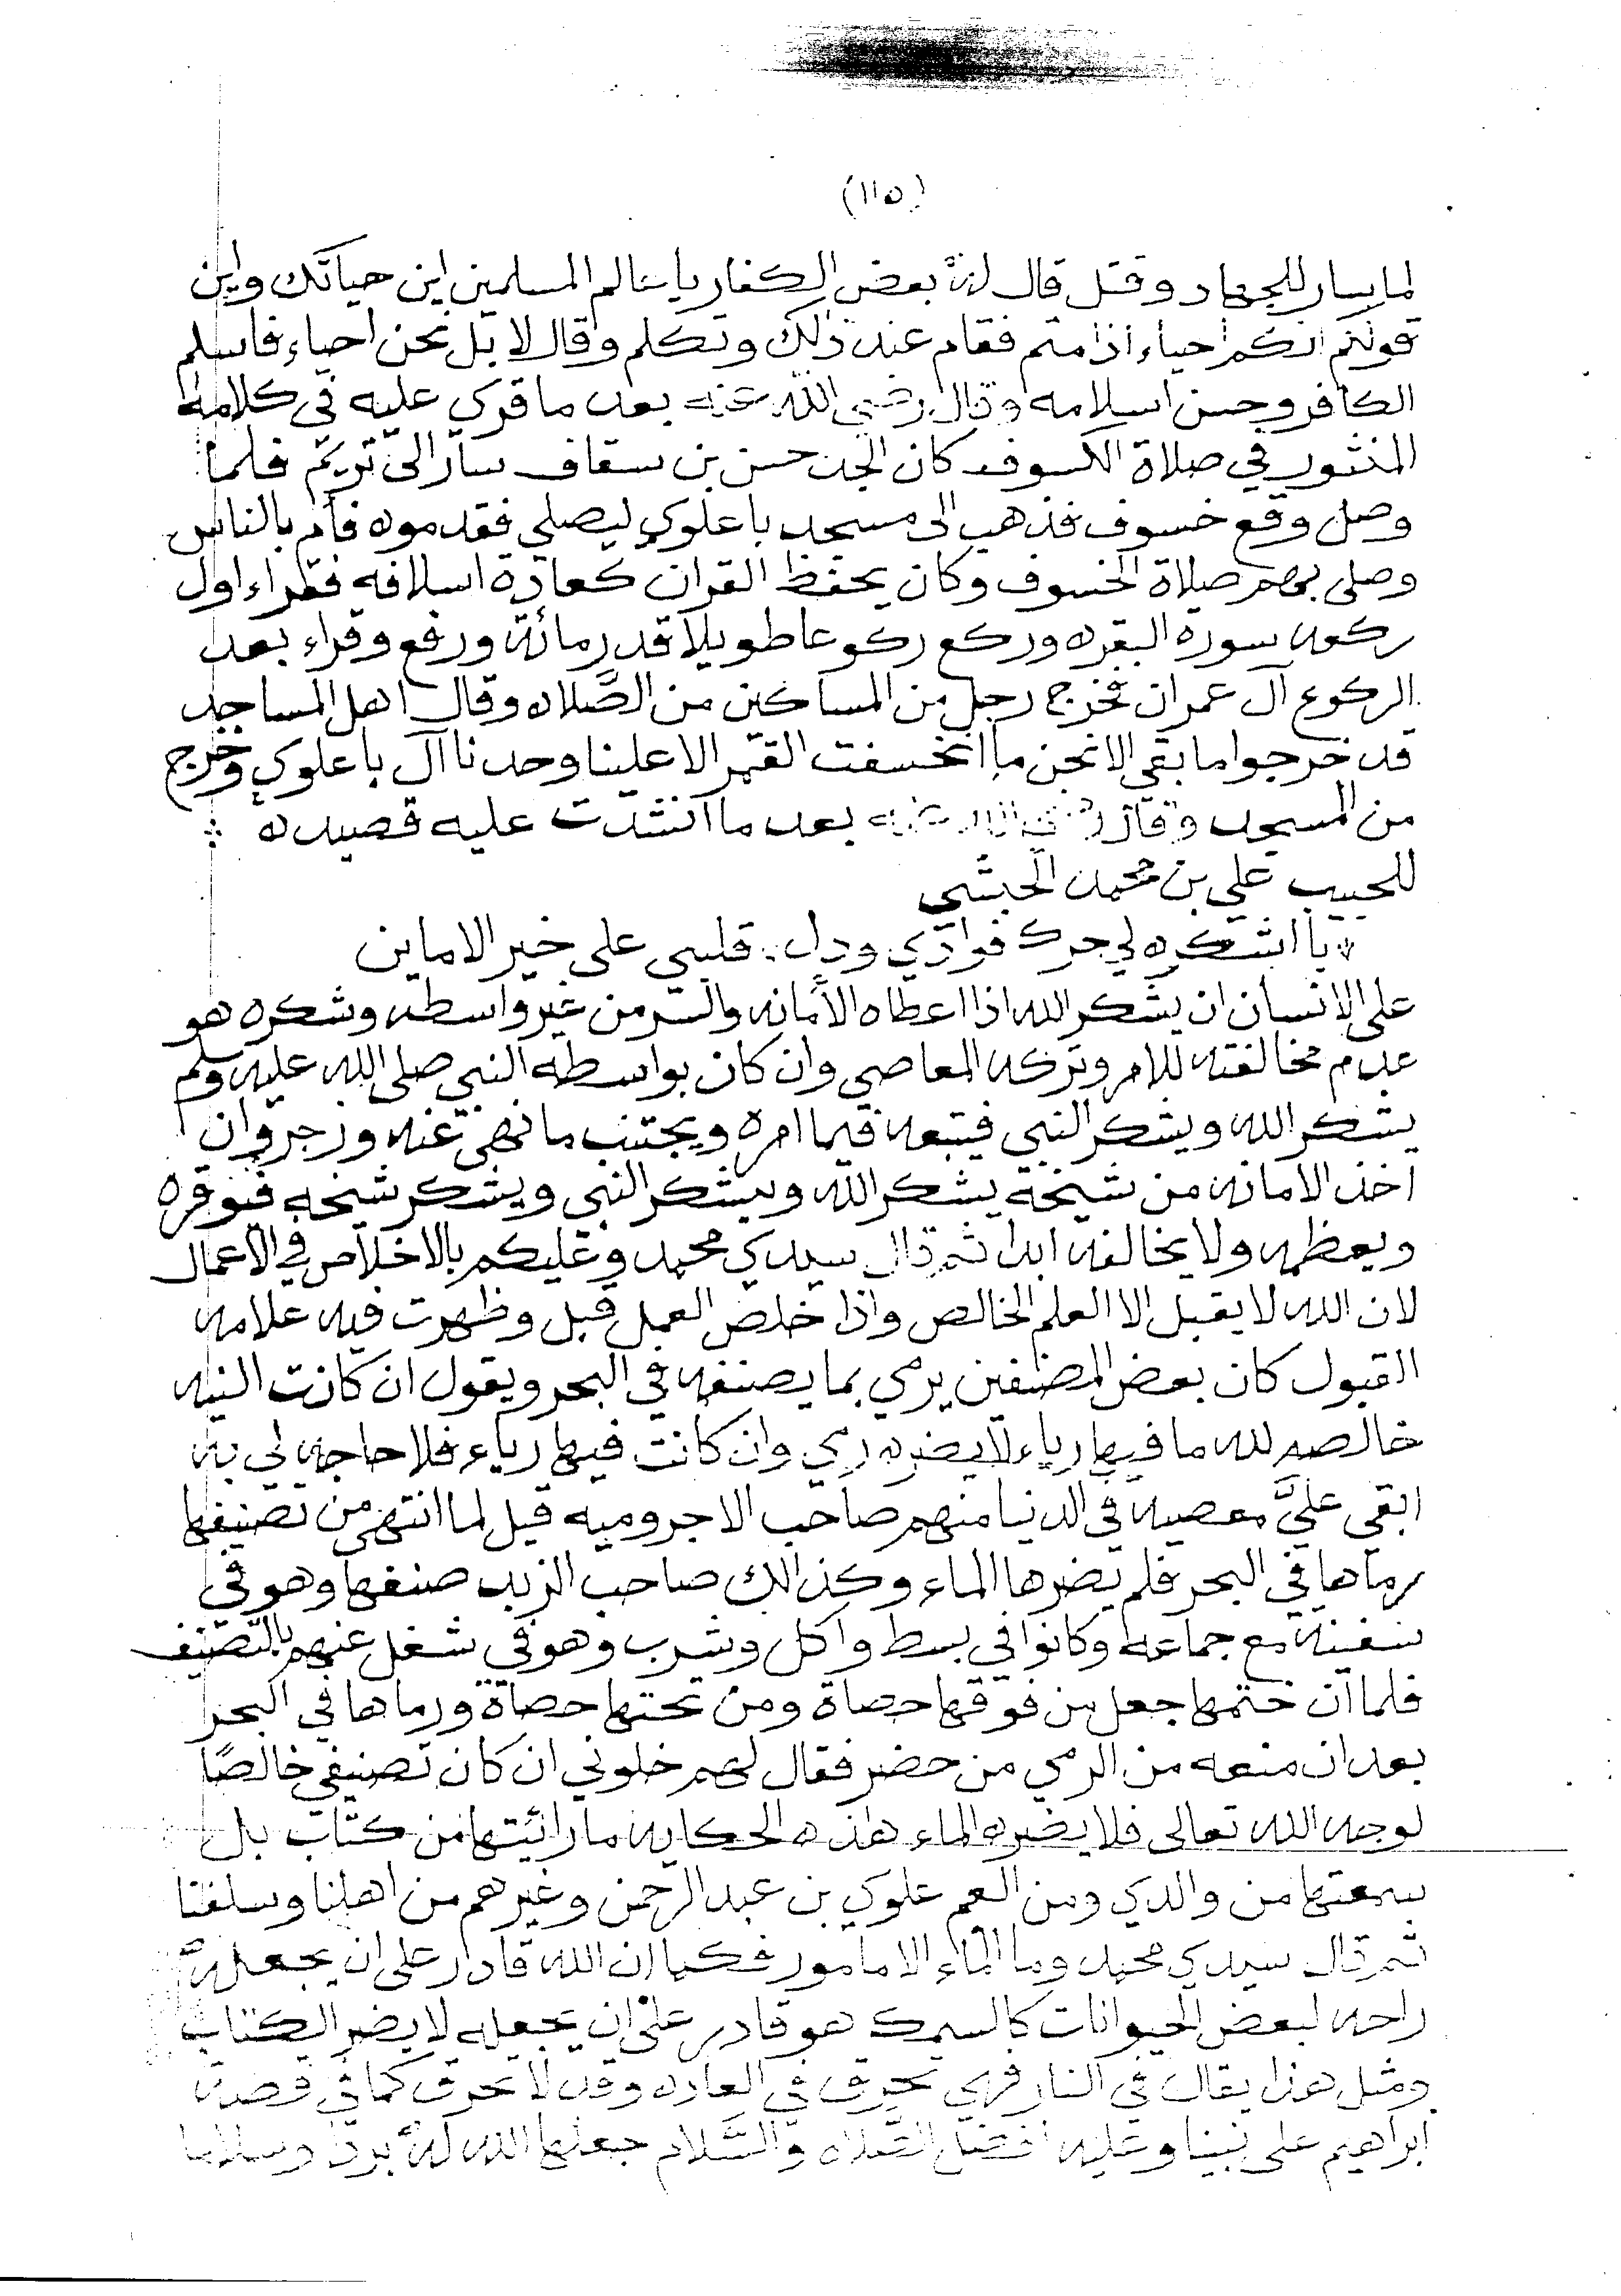 (١١٥)
لما سار للجهاد وقتل قال له بعض الكفار يا عالم المسلمين اين حياتك واين
قولكم انكم احياء اذا متم فقام عند ذلك وتكلم وقال لا بل نحن احياء فاسلم
الكافر وحسن اسلامه وقال رضي الله عنه بعد ما قري عليه في كلامه
المنثور في صلاة الكسوف كان الجد حسن بن سقاف سار الى تريم فلما
وصل وقع خسوف فذهب الى مسجد باعلوي ليصلي فقدموه فأم بالناس
وصلى بهم صلاة الخسوف وكان يحفظ القران كعادة اسلافه فقراء اول
ركعه سورة البقره وركع ركوعا طويلا قدر مائة ورفع وقراء بعد
الركوع آل عمران فخرج رجل من المساكين من الصَّلاه وقال اهل المساجد
قد خرجوا ما بقي الا نحن ما انخسفت القمر الا علينا وحدنا آل باعلوي وخرج
من المسجد وقال رضي الله عنه بعد ما انشدت عليه قصيده
للحبيب علي بن محمد الحبشي
يا ابشكره لي حرك فوادي ودل . قلبي على خير الاماين
على الانسان ان يشكر الله اذا اعطاه الأمانه والسر من غير واسطه وشكره هو
عدم مخالفته للامر وتركه المعاصي وان كان بواسطه النبي صلى الله عليه وسلم
يشكر الله ويشكر النبي فيتبعه فيما امره ويجتنب ما نهى عنه وزجر وان
اخذ الامانه من شيخه يشكر الله ويشكر النبي ويشكر شيخه فيوقره
ويعظمه ولا يخالفه ابدا ثم قال سيدي محمد وعليكم بالاخلاص في الاعمال
لان الله لا يقبل الا العلم الخالص واذا خلص العمل قبل وظهرت فيه علامه
القبول كان بعض المصنفين يرمي بما يصنفه في البحر ويقول ان كانت النيه
خالصه لله ما فيها رياء لا يضره رمي وان كانت فيها رياء فلا حاجه لي به
ابقي عليَّ معصيه في الدنيا منهم صاحب الاجروميه قيل لما انتهى من تصنيفها
رماها في البحر فلم يضرها الماء وكذالك صاحب الزبد صنفها وهو في
سفينه مع جماعه وكانوا في بسط واكل وشرب وهو في شغل عنهم بالتصنيف
فلما ان ختمها جعل من فوقها حصاة ومن تحتها حصاة ورماها في البحر
بعد ان منعه من الرمي من حضر فقال لهم خلوني ان كان تصنيفي خالصًا
لوجه الله تعالى فلا يضره الماء هذه الحكايه ما رائيتها من كتاب بل
سمعتها من والدي ومن العم علوي بن عبد الرحمن وغيرهم من اهلنا وسلفنا
ثم قال سيدي محمد وما الماء الا مامور فكما ان الله قادر على ان يجعله
راحه لبعض الحيوانات كالسمك هو قادر على ان يجعله لا يضر الكتاب
ومثل هذا يقال في النار فهي تحرق في العاده وقد لا تحرق كما في قصة
ابراهيم على نبينا وعليه افضل الصَّلاه والسَّلام جعلها الله له بردا وسلاما